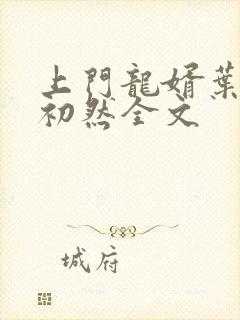 上門龍婿葉
初然全文
城府